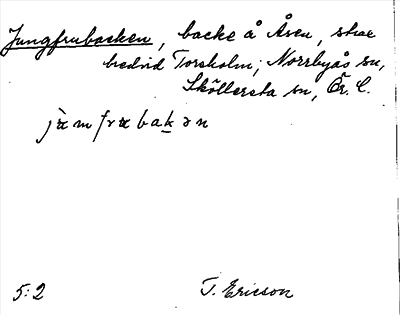 Jungfrubacken, backe å Åsen, strax
bredvid Torsholm; Norrbyås sn,
Sköllersta sn, Ör. L.
jʉ̀mfrʉbakən
5:2 T. Ericson